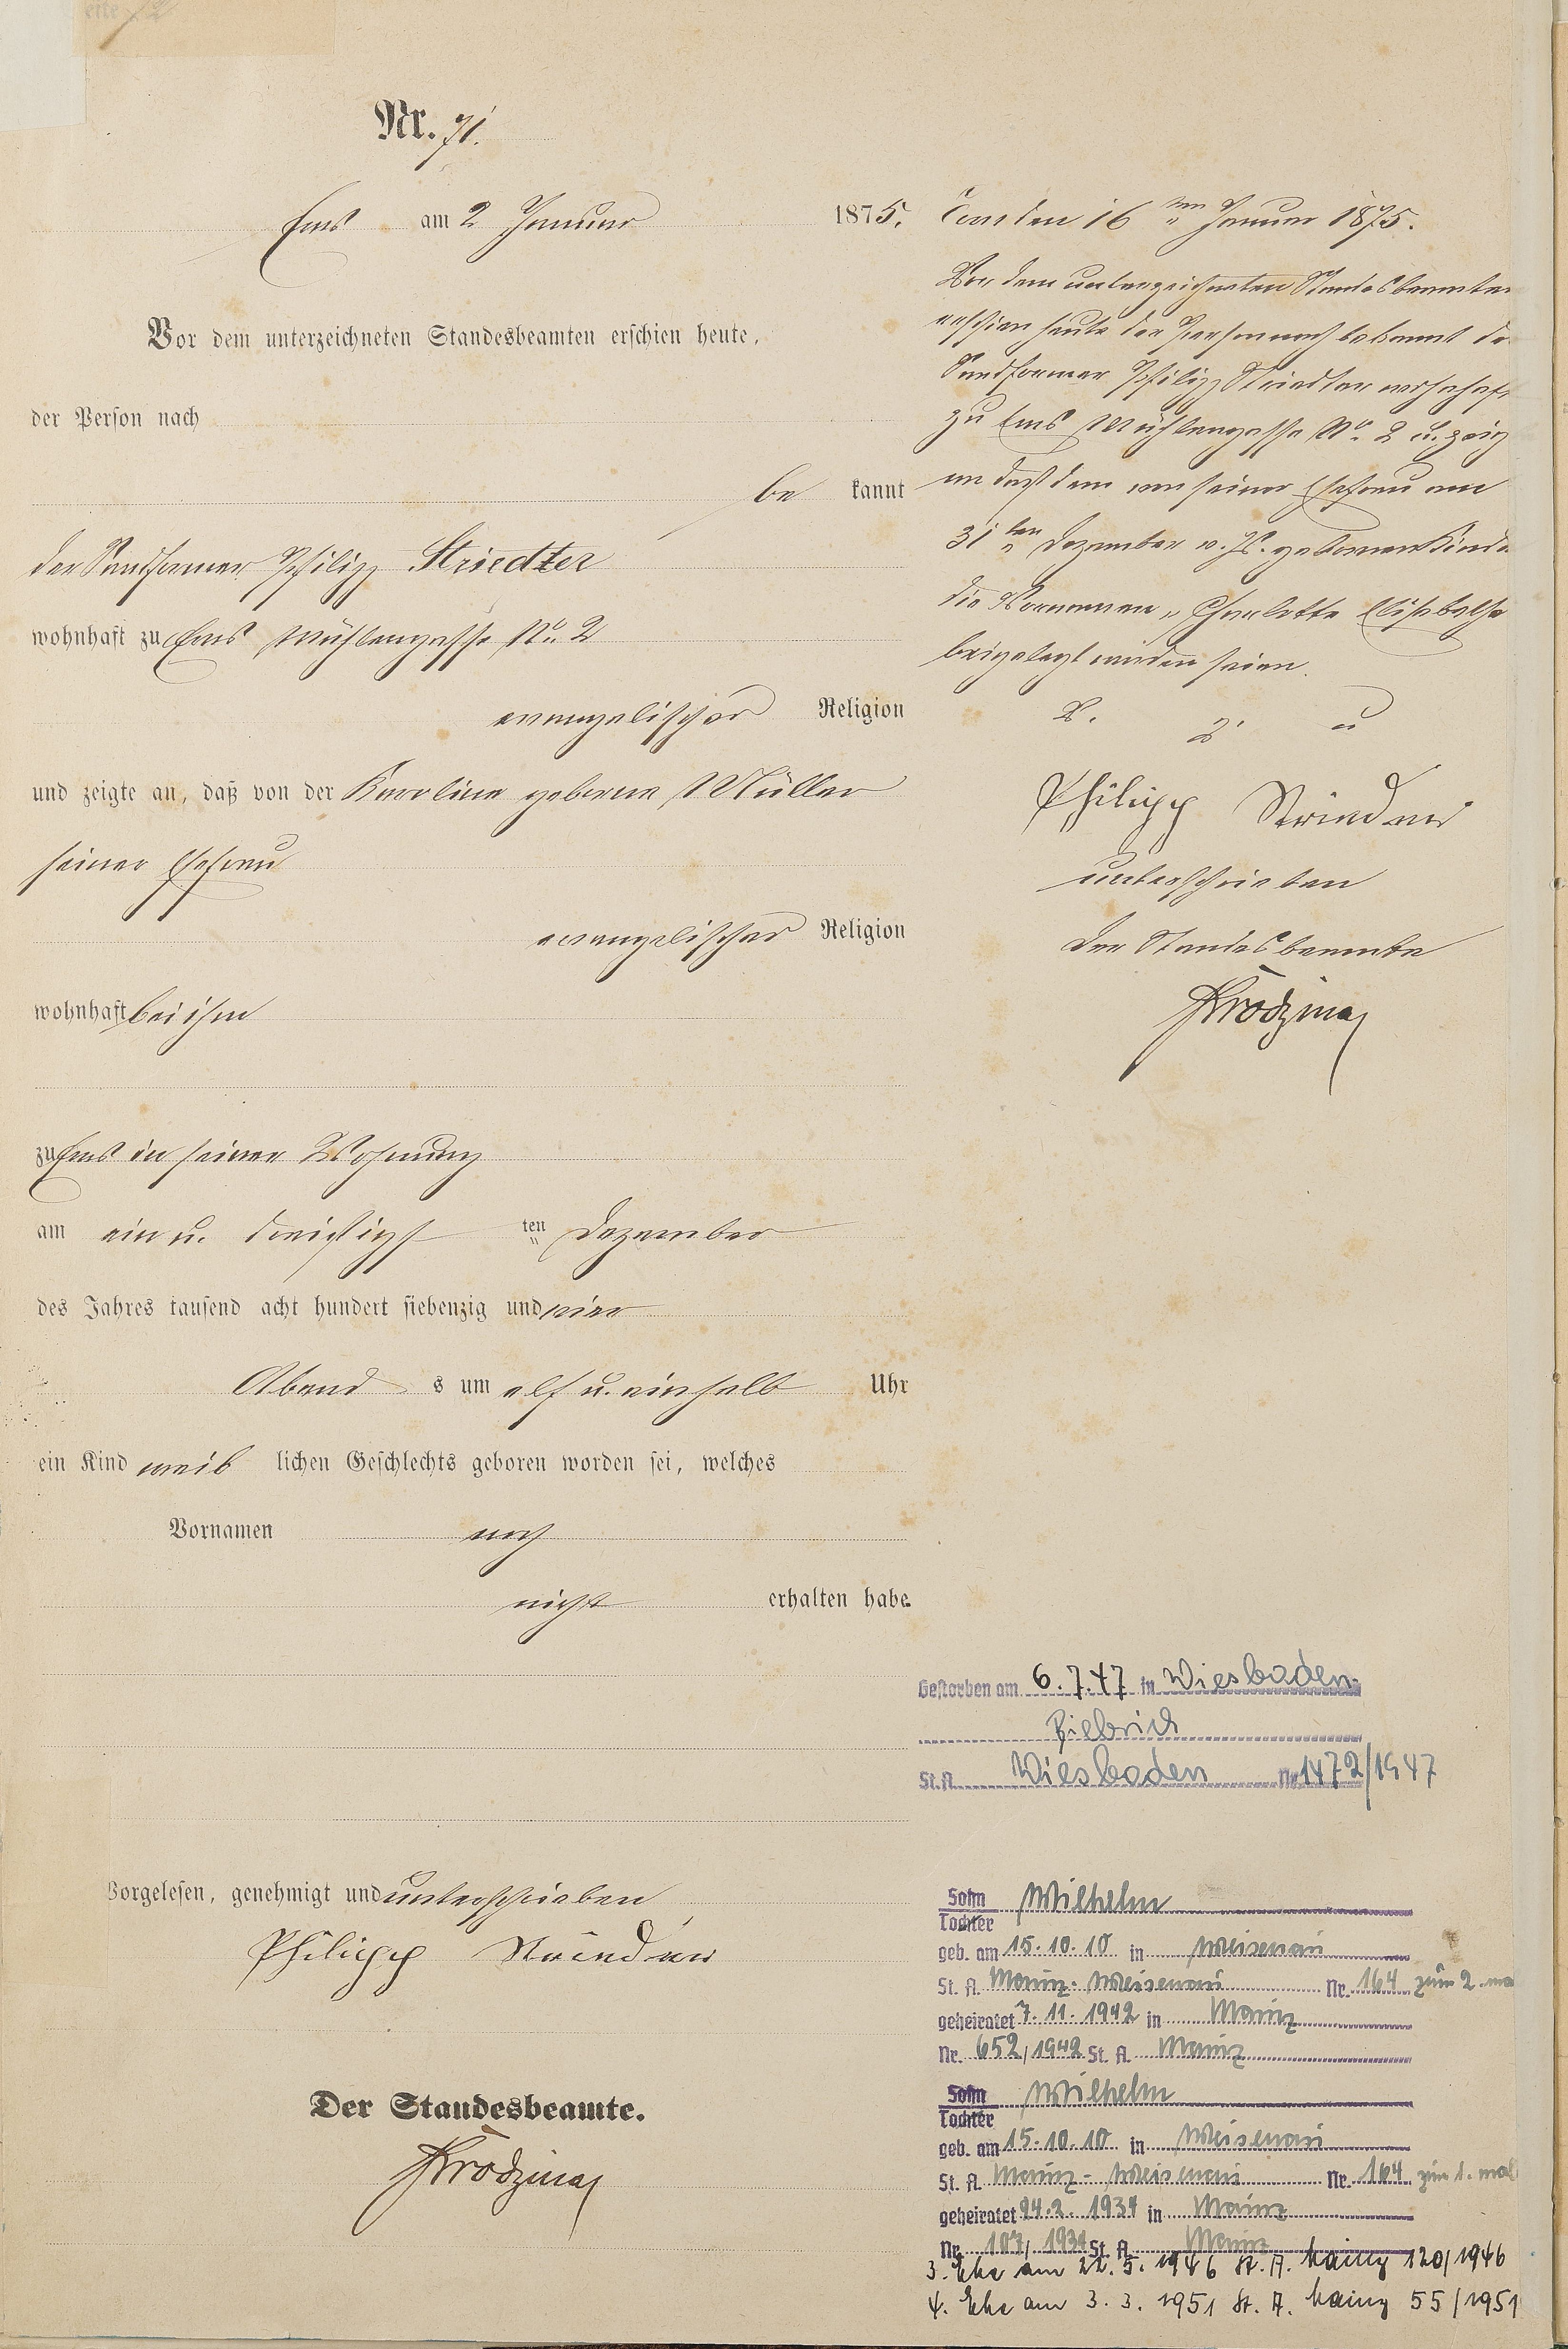 Nr. 71.
Ems am 2 Januar 1875.
Vor dem unterzeichneten Standesbeamten erschien heute,
der Person nach
be kannt
der Sandformer Philipp Striedter
wohnhaft zu Ems Mühlengasse No. 2
evangelischer Religion
und zeigte an, daß von der Karoline geborene Müller
seiner Ehefrau
evangelischer Religion
wohnhaft bei ihm
zu Ems in seiner Wohnung
am ein u. dreißigst ten Dezember
des Jahres tausend acht hundert siebenzig und vier
Abend s um elf u. einhalb Uhr
ein Kind weib lichen Geschlechts geboren worden sei, welches
Vornamen noch
nicht erhalten habe.
Vorgelesen, genehmigt und unterschrieben
Philipp Striedter
Der Standesbeamte.
den 16ten Januar 1875.
Vor dem unterzeichneten Standesbeamten
erschien heute der Person nach bekannt de
Sandformer Philipp Striedter wohnhaft
zu Ems Mühlengasse No. 2 u. zeig
an daß dem von seiner Ehefrau am
31ten Dezember v. Js. geborenen Kinde
die Vornamen „Charlotte Elisabethe
beigelegt worden seien.
V. g. u
Philipp Striedter
unterschrieben
Der Standesbeamte
Gestorben am 6.7.47 in Wiesbaden-
Biebrich
St.A. Wiesbaden Nr. 1472/1947
Sohn Wilhelm
Tochter
geb. am 15.10.10 in Weisenau
St. A. Mainz-Weisenau Nr. 164 zum 2. ma
geheiratet 7.11.1942 in Mainz
Nr. 652/1942 St. A. Mainz
Sohn Wilhelm
Tochter
geb. am 15.10.10 in Weisenau
St. A. Mainz-Weisenau Nr. 164 zum 1. mal
geheiratet 24.2.1934 in Mainz
Nr. 107/1934 St. A. Mainz
3. Ehe am 22.5.1946 St. A. Mainz 120/1946
4. Ehe am 3.3.1951 St. A. Mainz 55/1951